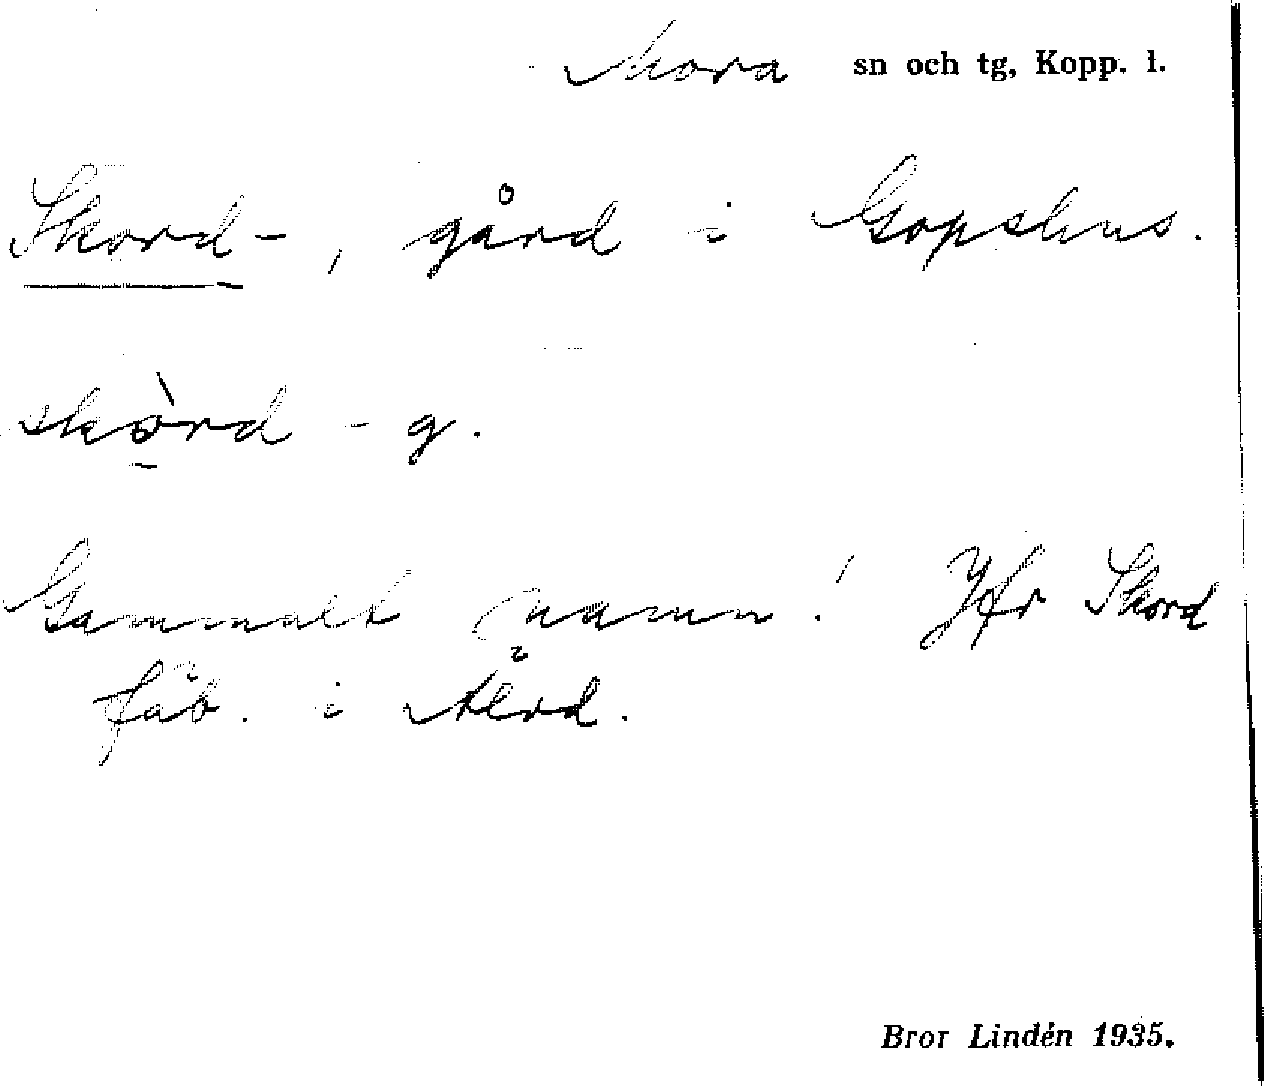 Mora sn och tg, Kopp. l.
Skord-, gård i Gopshus.
skòrd - g.
Gammalt namn! Jfr Skord
fäb. i Älvd.
Bror Lindén 1935.